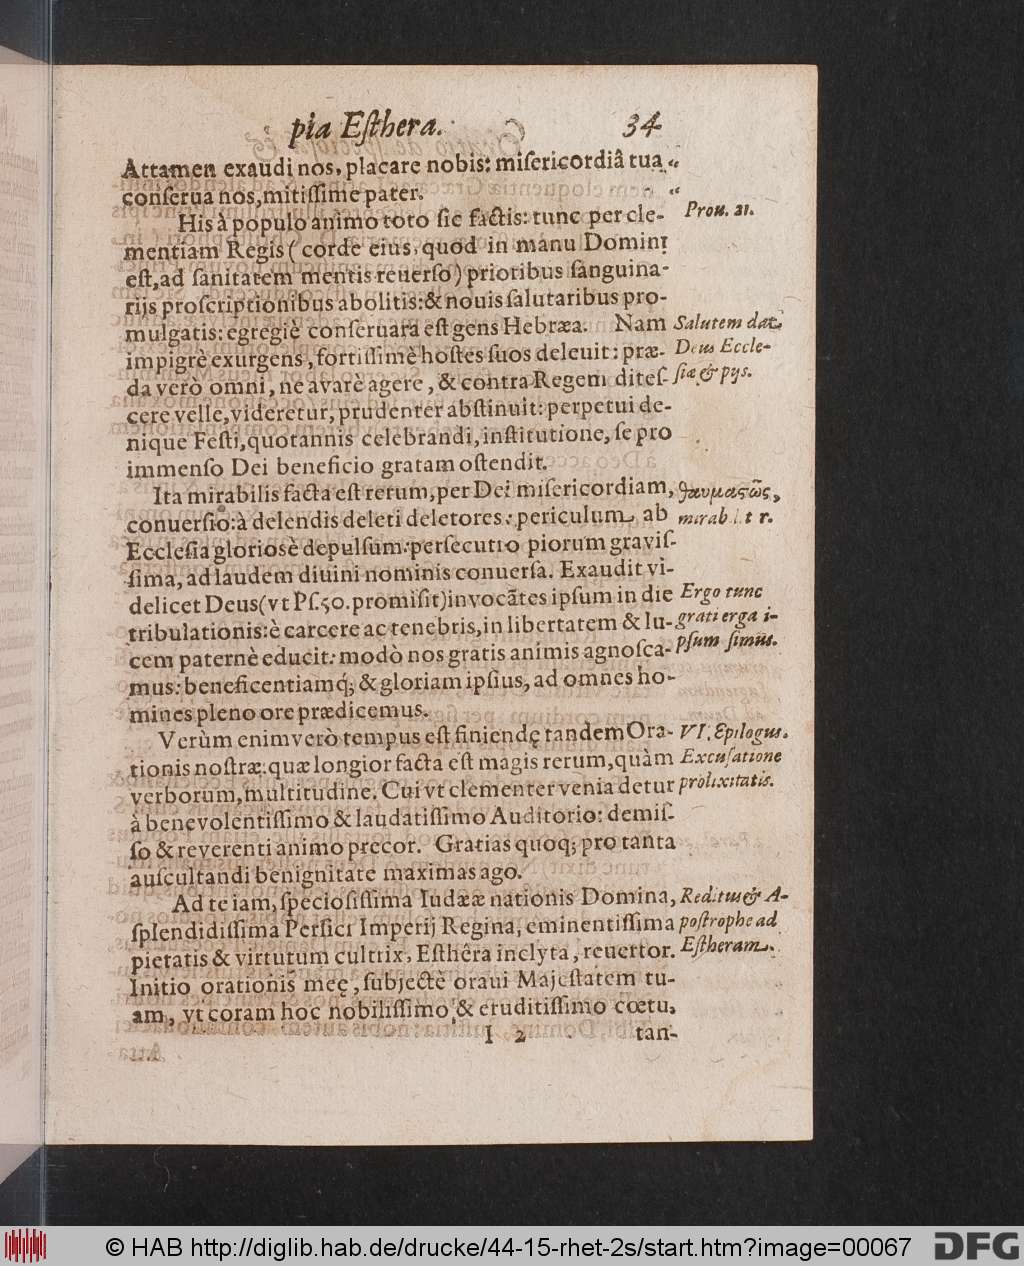 pia Eſthera. 34
Attamen exaudi nos, placare nobis: miſericordiâ tua „
conſerua nos, mitiſſime pater. „
His à populo animo toto ſic factis: tunc per cle-
Prou. 21.
mentiam Regis ( corde eius, quod in manu Domini
eſt, ad ſanitatem mentis reuerſo ) prioribus ſanguina-
rijs proſcriptionibus abolitis: & nouis ſalutaribus pro-
mulgatis: egregiè conſeruata eſt gens Hebræa. Nam
Salutem dat
impigrè exurgens, fortiſſimè hoſtes ſuos deleuit: præ-
Deus Eccle-
da verò omni, ne avarè agere, & contra Regem diteſ-
ſiæ & pijs.
cere velle, videretur, prudenter abſtinuit: perpetui de-
nique Feſti, quotannis celebrandi, inſtitutione, ſe pro
immenſo Dei beneficio gratam oſtendit.
Ita mirabilis facta eſt rerum, per Dei miſericordiam,
θαυμαςῶς,
conuerſio: à delendis deleti deletores: periculum ab
mirabil t r.
Eccleſia glorioſè depulſum: perſecutio piorum graviſ-
ſima, ad laudem diuini nominis conuerſa. Exaudit vi-
delicet Deus (vt Pſ. 50. promiſit) invocãtes ipſum in die
Ergo tunc
tribulationis: è carcere ac tenebris, in libertatem & lu-
grati erga i-
cem paternè educit: modò nos gratis animis agnoſca-
pſum ſimus.
mus: beneficentiamq́; & gloriam ipſius, ad omnes ho-
mines pleno ore prædicemus.
Verùm enimverò tempus eſt finiendę tandem Ora-
VI. Epilogus.
tionis noſtræ: quæ longior facta eſt magis rerum, quàm
Excuſatione
verborum, multitudine. Cui vt clementer venia detur
prolixitatis.
à benevolentiſſimo & laudatiſſimo Auditorio: demiſ-
ſo & reverenti animo precor. Gratias quoq; pro tanta
auſcultandi benignitate maximas ago.
Ad te iam, ſpecioſiſſima Iudææ nationis Domina,
Reditus & A-
ſplendidiſſima Perſici Imperij Regina, eminentiſſima
poſtrophe ad
pietatis & virtutum cultrix, Eſthêra inclyta, reuertor.
Eſtheram.
Initio orationis meę, ſubjectè oraui Majeſtatem tu-
am, vt coram hoc nobiliſſimo & eruditiſſimo cœtu,
I 2 tan-
© HAB http://diglib.hab.de/drucke/44-15-rhet-2s/start.htm?image=00067
DFG